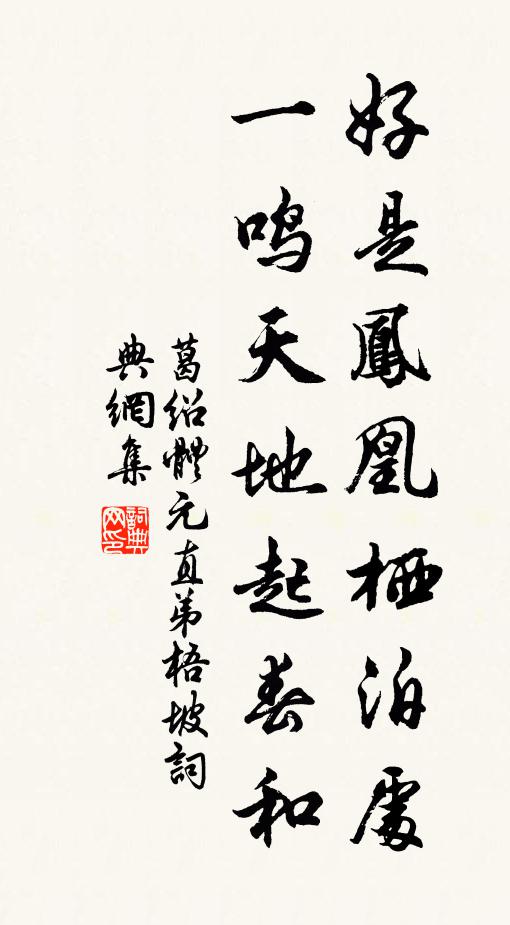 好是鳳凰栖泊處
一鳴天地起春和
葛绍體元直弟梧坡詞
典網集
詞典
网印